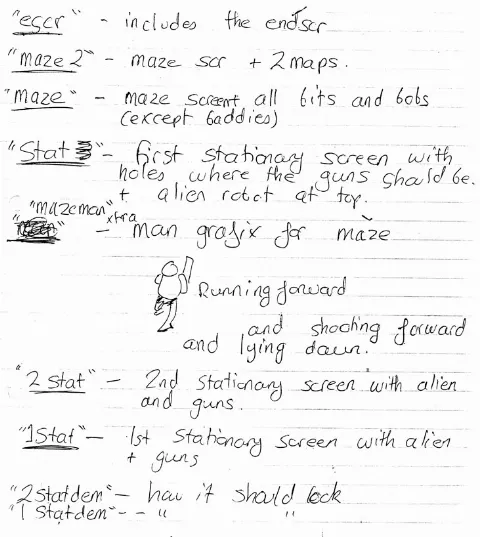 "escr" - includes the endscr
"maze 2" - maze scr + 2 maps.
"maze" - maze screen all bits and bobs
(except baddies)
"Stat" - first stationary screen with
holes where the guns should be.
+ alien robot at top.
"mazeman"
xtra
- man grafix for maze
Running forward
and shooting forward
and lying down.
"2 stat" - 2nd stationary screen with alien
and guns.
"1Stat" - 1st stationary screen with alien
+ guns
"2statdem" - how it should look
"1 Statdem" - - " "